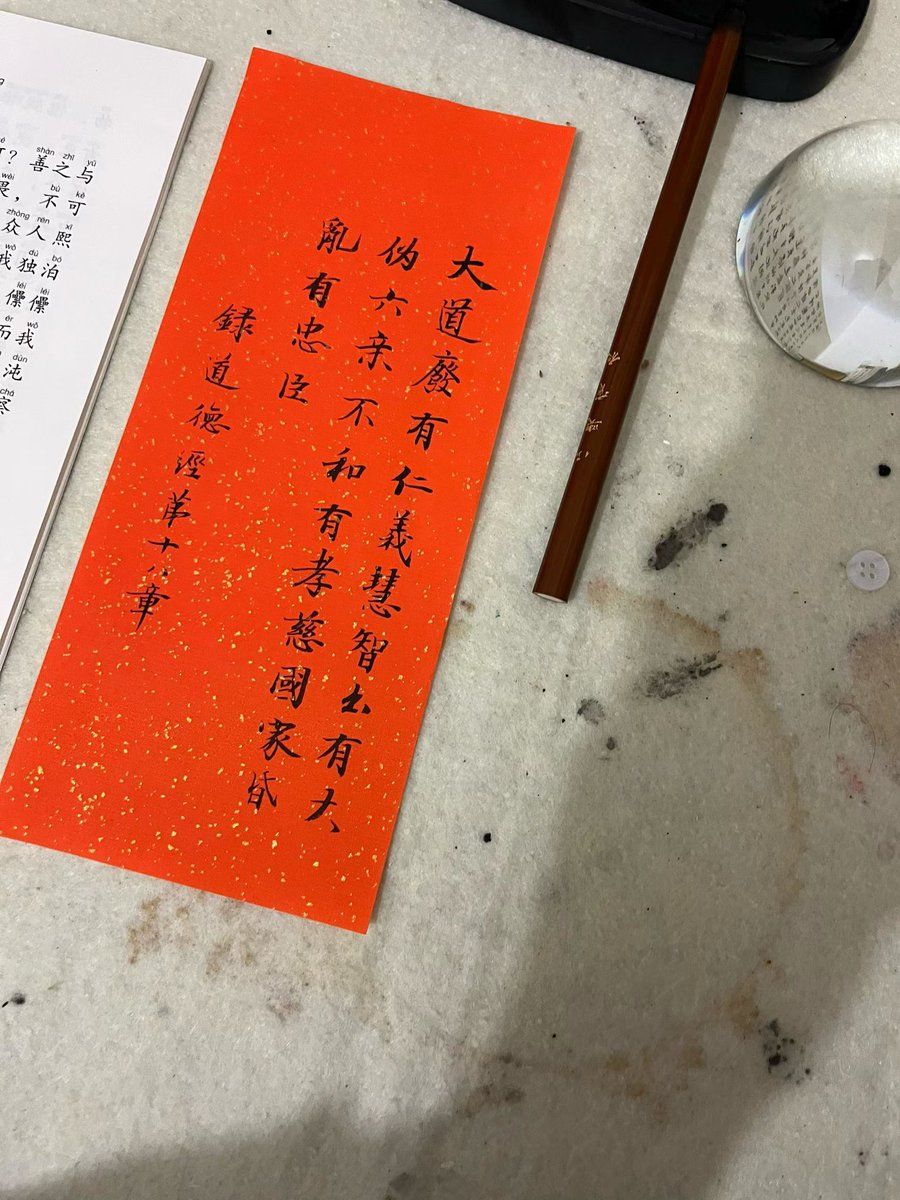 大道廢有仁義慧智出有大
伪六亲不和有孝慈國家昏
亂有忠臣
録道德經苐十八章
shàn zhī yǔ
？善之与
wèi bù kě
畏，不可
zhòng rén xī
众人熙
wǒ dú bó
我独泊
lěi lěi
儽儽
ér wǒ
而我
dùn
沌
chá
察